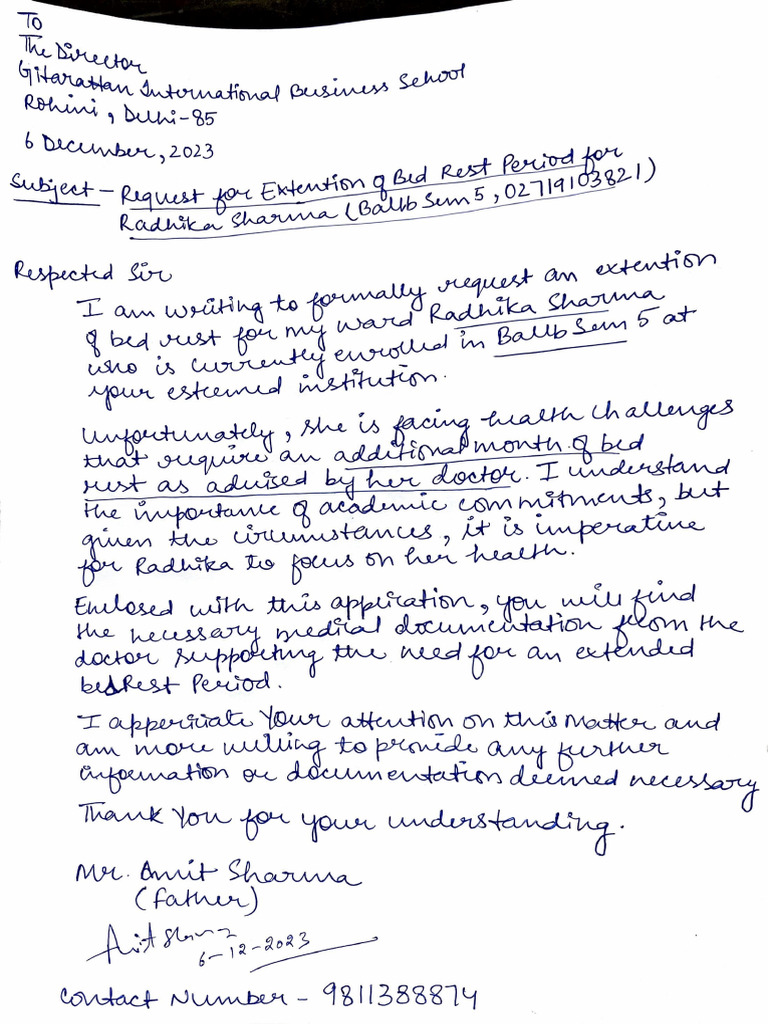 To
The Director
Gitarattan International Business School
Rohini, Delhi-85
6 December, 2023
Subject - Request for Extention of Bed Rest Period for
Radhika Sharma (Ballb Sem 5, 02719103821)
Respected Sir
I am writing to formally request an extention
of bed rest for my ward Radhika Sharma
who is currently enrolled in Ballb Sem 5 at
your esteemed institution.
Unfortunately, she is facing health challenges
that require an additional month of bed
rest as advised by her doctor. I understand
the importance of academic commitments, but
given the circumstances, it is imperative
for Radhika to focus on her health.
Enclosed with this application, you will find
the necessary medical documentation from the
doctor supporting the need for an extended
bed Rest Period.
I apperičiate Your attention on this matter and
am more willing to provide any further
information or documentation deemed necessary
Thank You for your understanding.
Mr. Amit Sharma
(father)
6-12-2023
Contact Number - 9811388874